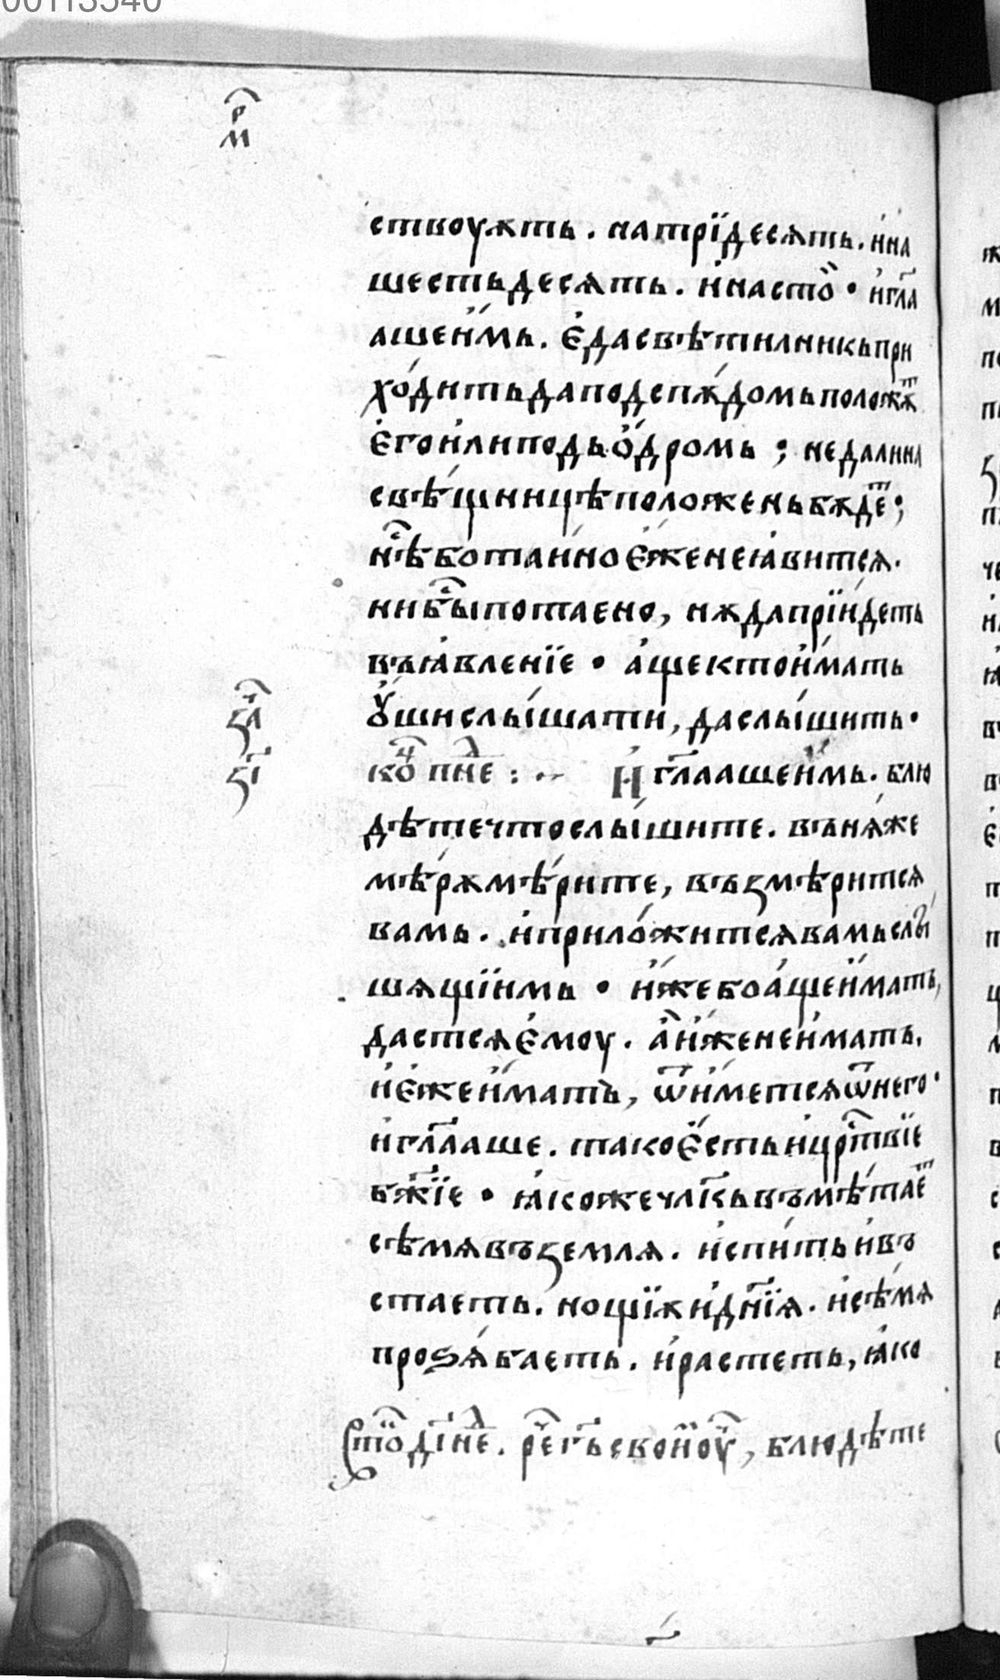 00113540
р҃м
ствоуѫть . на трїдесѧть . и на
шестьдесѧть . и на сто̀ • и гл҃а
аше и҆мь . є҆да свѣтилникь при
хо́дить да под спѫ́домь положѫⷮ
є҆го и҆ли подь ѻ҆́дромь ; не да ли на
свѣ́щницѣ положень бѫдеⷮ ;
нⷭ҇ѣ бо таи́но є҆́же не ꙗ҆витсѧ .
ни быⷭ҇ потаено , нѫ да прїидеть
въ ꙗ҆вленїе • а҆ще кто и҆́мать
ѹ҆́ши слы́шати , да слы́шить •
ꙁ҃а
ꙁ҃і
коⷰ҇ пнⷣе : ~ И гл҃ааше и҆́мь . блю
дѣ́те что слы́шите . въ нѧ́же
мѣ́рѫ мѣ́рите , възмѣ́ритсѧ
вамь . и҆ прило́житсѧ вамь слы́
шѧщїимь • и҆́же бо а҆́ще и҆́мать ,
дастсѧ є҆моу . а҆ и҆́же не и҆́мать ,
и҆ є҆́же и҆́мать , ѿи҆́метсѧ ѿ него •
и҆ гл҃ааше . тако є҆́сть и҆ црⷭ҇твїе
бж҃їе • ꙗ҆коже чл҃кь въмѣ́таеⷮ
сѣ́мѧ въ землѧ . и҆ спи́ть и҆ въ
стаеть . нощїѫ и҆ дн҃їѧ . и҆ сѣ́мѧ
проѕѧ́баеть . и҆ растеть , ꙗ҆́ко
дⷩ҇е . рⷱ҇е гⷭ҇ь своиⷨ оуⷱ҇ , блюдѣте